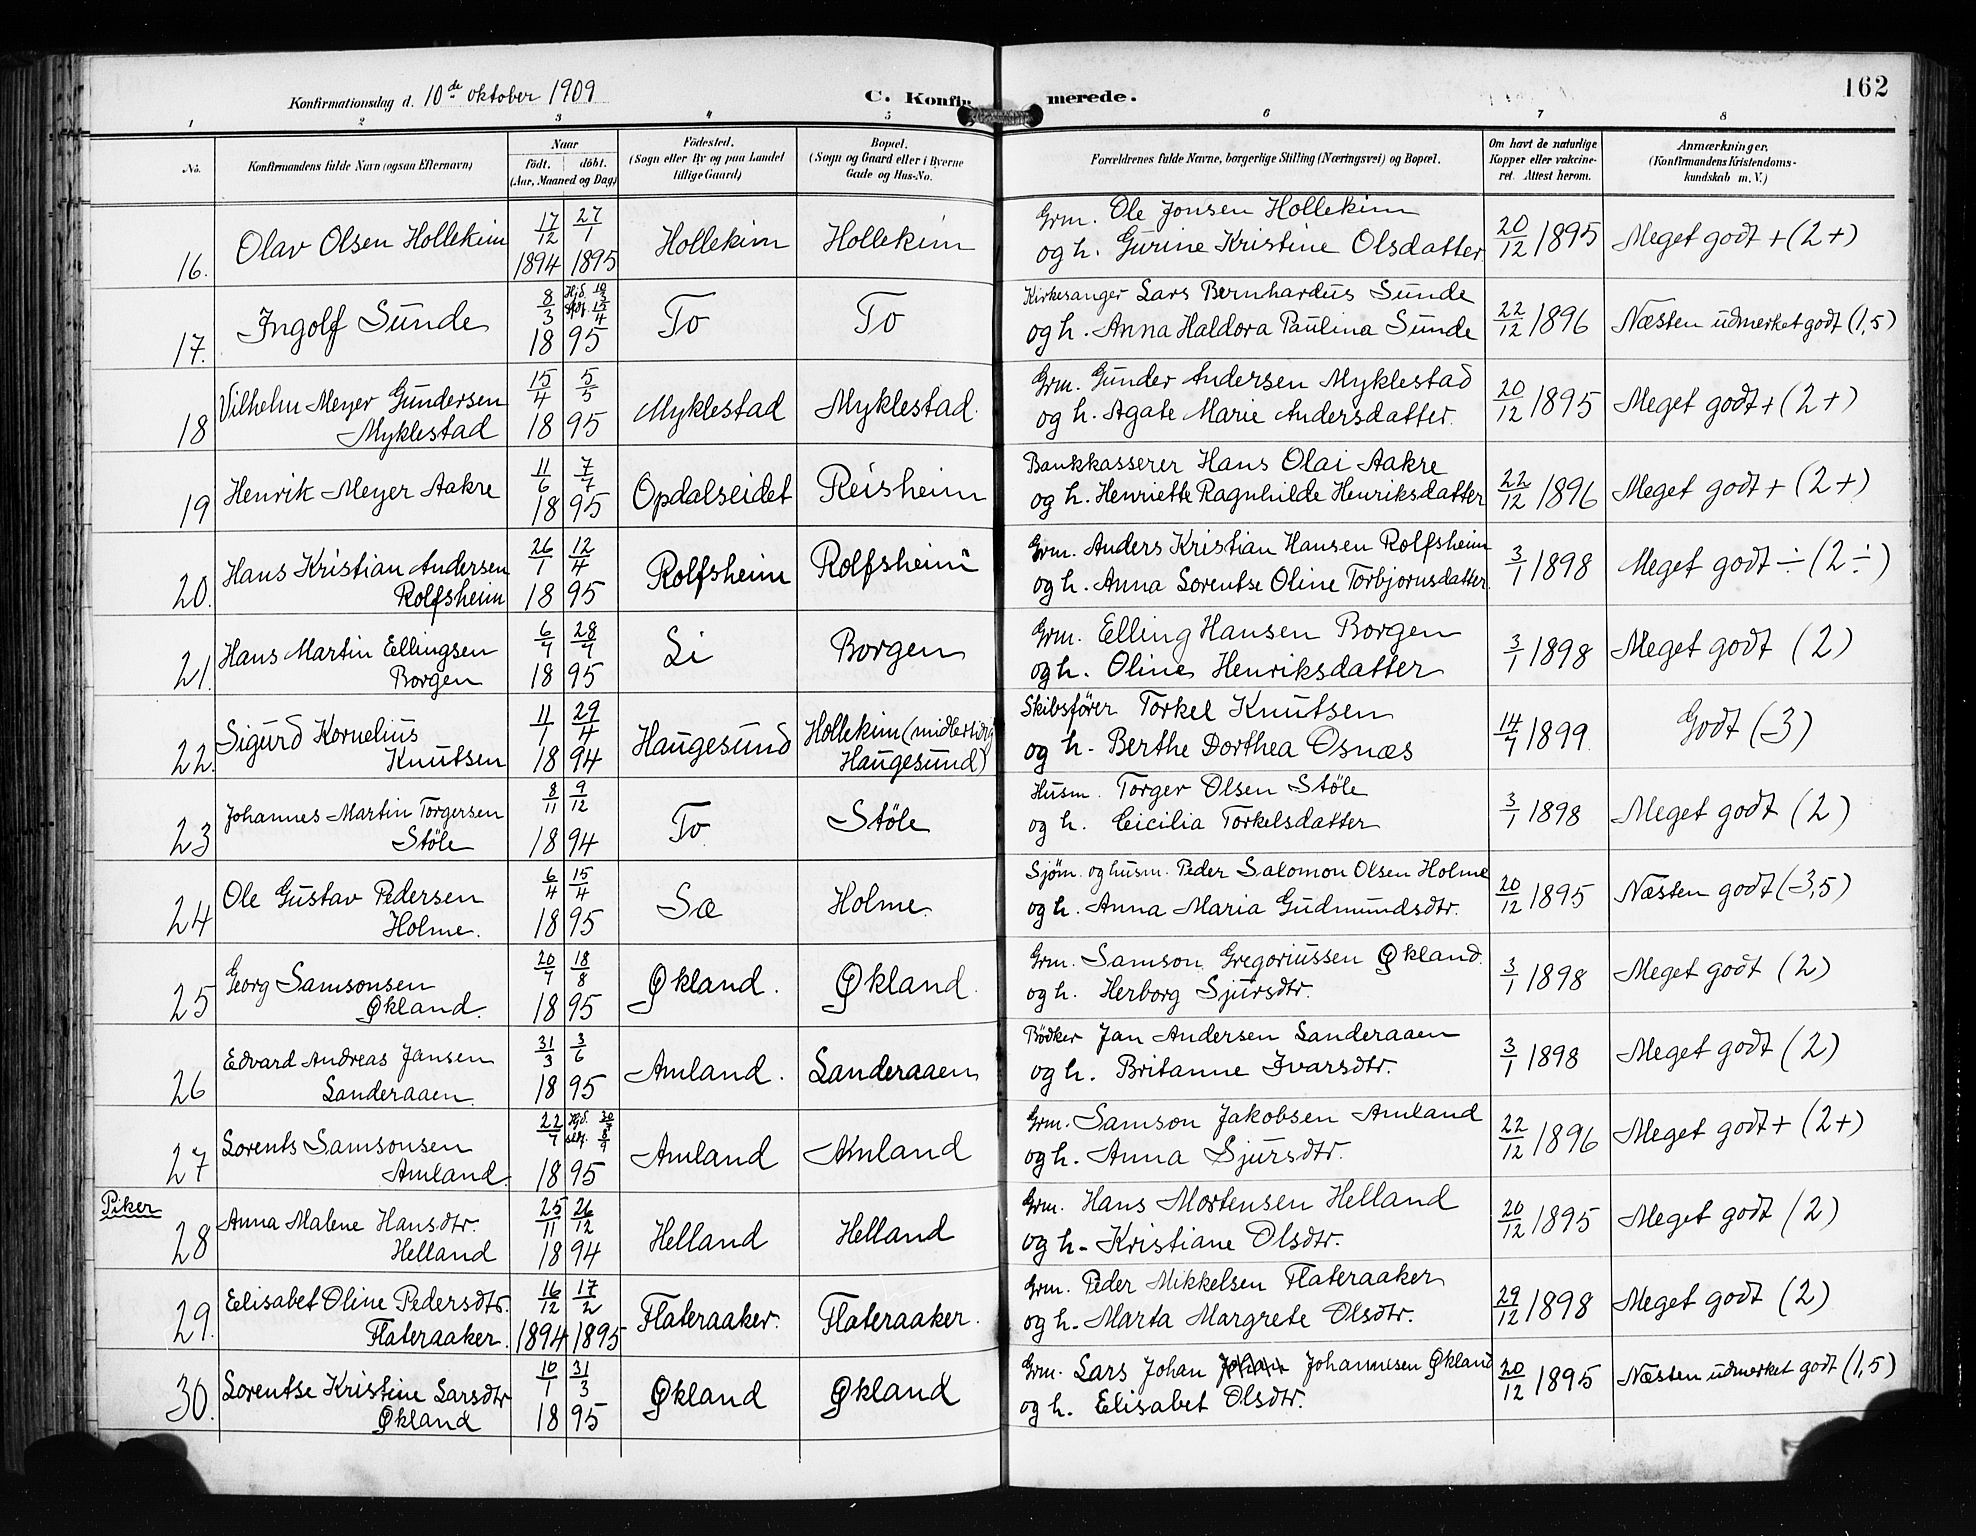 162
Konfirmationsdag d. 10de oktober 1909
C. Konfirmerede.
1 2 3 4 5 6 7 8
No. | Konfirmandens fulde Navn (ogsaa Efternavn) | Naar født. døbt. (Aar, Maaned og Dag) | Fødested. (Sogn eller By og paa Landet tillige Gaard) | Bopæl. (Sogn og Gaard eller i Byerne Gade og Hus-No. | Forældrenes fulde Navne, borgerlige Stilling (Næringsvei) og Bopæl. | Om havt de naturlige Kopper eller vakcineret. Attest herom. | Anmærkninger. (Konfirmandens Kristendomskundskab m. V.)
16. Olav Olsen Hollekim | 17/12 1894 | 27/1 1895 | Hollekim | Hollekim | Grm. Ole Jonsen Hollekim
og h. Gurine Kristine Olsdatter | 20/12 1895 | Meget godt + (2+)
17. Ingolf Sunde | 8/3 1895 | To | To | Kirkesanger Lars Bernhardus Sunde
og h. Anna Haldora Paulina Sunde | 22/12 1896 | Næsten udmerket godt (1,5)
18 Vilhelm Meyer Gundersen
Myklestad | 15/4 5/5 1895 | Myklestad | Myklestad | Grm. Gunder Andersen Myklestad
og h. Agate Marie Andersdatter. | 20/12 1895 | Meget godt + (2+)
19 Henrik Meyer Aakre | 11/6 7/7 1895 | Opdalseidet | Reisheim | Bankkasserer Hans Olai Aakre
og h. Henriette Ragnhilde Henriksdatter | 22/12 1896 | Meget godt + (2+)
20. Hans Kristian Andersen
Rolfsheim | 26/1 12/4 1895 | Rolfsheim | Rolfsheim | Grm. Anders Kristian Hansen Rolfsheim
og h. Anna Lorentse Oline Torbjornsdatter | 3/1 1898 | Meget godt ÷ (2 ÷)
21. Hans Martin Ellingsen
Borgen | 6/7 28/7 1895 | Li | Borgen | Grm. Elling Hansen Borgen
og h. Oline Henriksdatter | 3/1 1898 | Meget godt (2)
22. Sigurd Kornelius
Knutsen | 11/1 29/4 1894 | Haugesund | Hollekim (midlertidig
Haugesund) | Skibsfører Torkel Knutsen
og h. Berthe Dorthea Osnæs | 14/7 1899. | Godt (3)
23 Johannes Martin Torgersen
Støle | 8/11 9/12 1894 | To | Støle | Husm. Torger Olsen Støle
og h. Cicilia Torkelsdatter | 3/1 1898 | Meget godt (2)
24 Ole Gustav Pedersen
Holme. | 6/4 15/4 1895 | Sæ | Holme. | Sjøm. og husm. Peder Salomon Olsen Holme
og h. Anna Maria Gudmundsdtr. | 20/12 1895 | Næsten godt (3,5)
25 Georg Samsonsen
Økland. | 20/7 18/8 1895 | Økland. | Økland. | Grm. Samson Gregoriussen Økland.
og h. Herborg Sjursdtr. | 3/1 1898 | Meget godt (2)
26 Edvard Andreas Jansen
Sanderaaen. | 31/3 3/6 1895 | Amland. | Sanderaaen | Bødker Jan Andersen Sanderaaen
og h. Britanne Ivarsdtr. | 3/1 1898 | Meget godt (2)
27 Lorents Samsonsen
Amland. | 22/7 1895 | Amland | Amland | Grm. Samson Jakobsen Amland
og h. Anna Sjursdtr. | 22/12 1896 | Meget godt + (2+)
Piker
28 Anna Malene Hansdtr.
Helland | 25/11 26/12 1894 | Helland | Helland | Grm. Hans Mortensen Helland
og h. Kristiane Olsdtr. | 20/12 1895 | Meget godt (2)
29. Eelisabet Oline Pedersdtr.
Flateraaker. | 16/12 1894 | 17/2 1895 | Flateraaker. | Flateraaker. | Grm. Peder Mikkelsen Flateraaker
og h. Marta Margrete Olsdtr. | 29/12 1898 | Meget godt (2)
30. Lorentse Kristine Larsdtr
Økland | 10/1 31/3 1895 | Økland | Økland | Grm. Lars Johan Johannesen Økland
og h. Elisabet Olsdtr. | 20/12 1895 | Næsten udmerket godt (1,5)